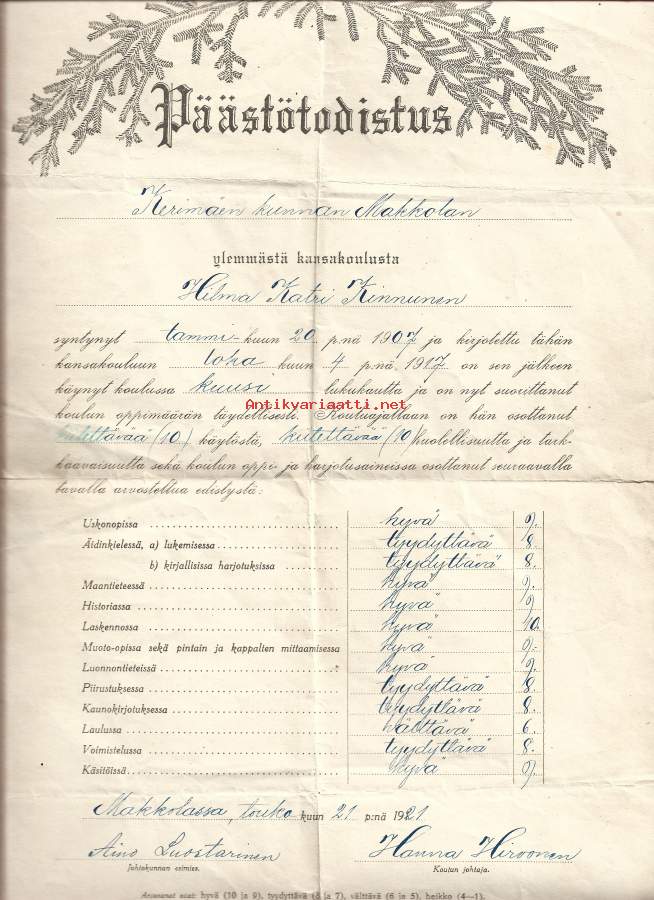 Päästötodistus
Kerimäen kunnan Makkolan
ylemmästä kansakoulusta
Hilma Katri Kinnunen
syntynyt tammi-kuun 20 p:nä 1907 ja kirjotettu tähän
kansakouluun loka kuun 4 p:nä 1917 on sen jälkeen
käynyt koulussa kuusi lukukautta ja on nyt suorittanut
koulun oppimäärän täydellisesti. Kouluajallaan on hän osottanut
Antikyariaatti.net
kiitettävää (10) käytöstä, kiitettävää (10) huolellisuutta ja tark-
kaavaisuutta sekä koulun oppi- ja harjotusaineissa osottanut seuraavalla
tavalla arvosteltua edistystä:
Uskonopissa hyvä 9.
Äidinkielessä, a) lukemisessa tyydyttävä 8.
b) kirjallisissa harjotuksissa tyydyttävä 8.
Maantieteessä hyvä 9.
Historiassa hyvä 9
Laskennossa hyvä 10.
Muoto-opissa sekä pintain ja kappalten mittaamisessa hyvä 9.
Luonnontieteissä hyvä 9.
Piirustuksessa tyydyttävä 8.
Kaunokirjotuksessa tyydyttävä 8.
Laulussa välttävä 6.
Voimistelussa tyydyttävä 8.
Käsitöissä hyvä 9.
Makkolassa, touko kuun 21 p:nä 1921.
Aino Luostarinen Hanna Hirvonen
Johtokunnan esimies. Koulun johtaja.
Arvosanat ovat: hyvä (10 ja 9), tyydyttävä (8 ja 7), välttävä (6 ja 5), heikko (4—1).